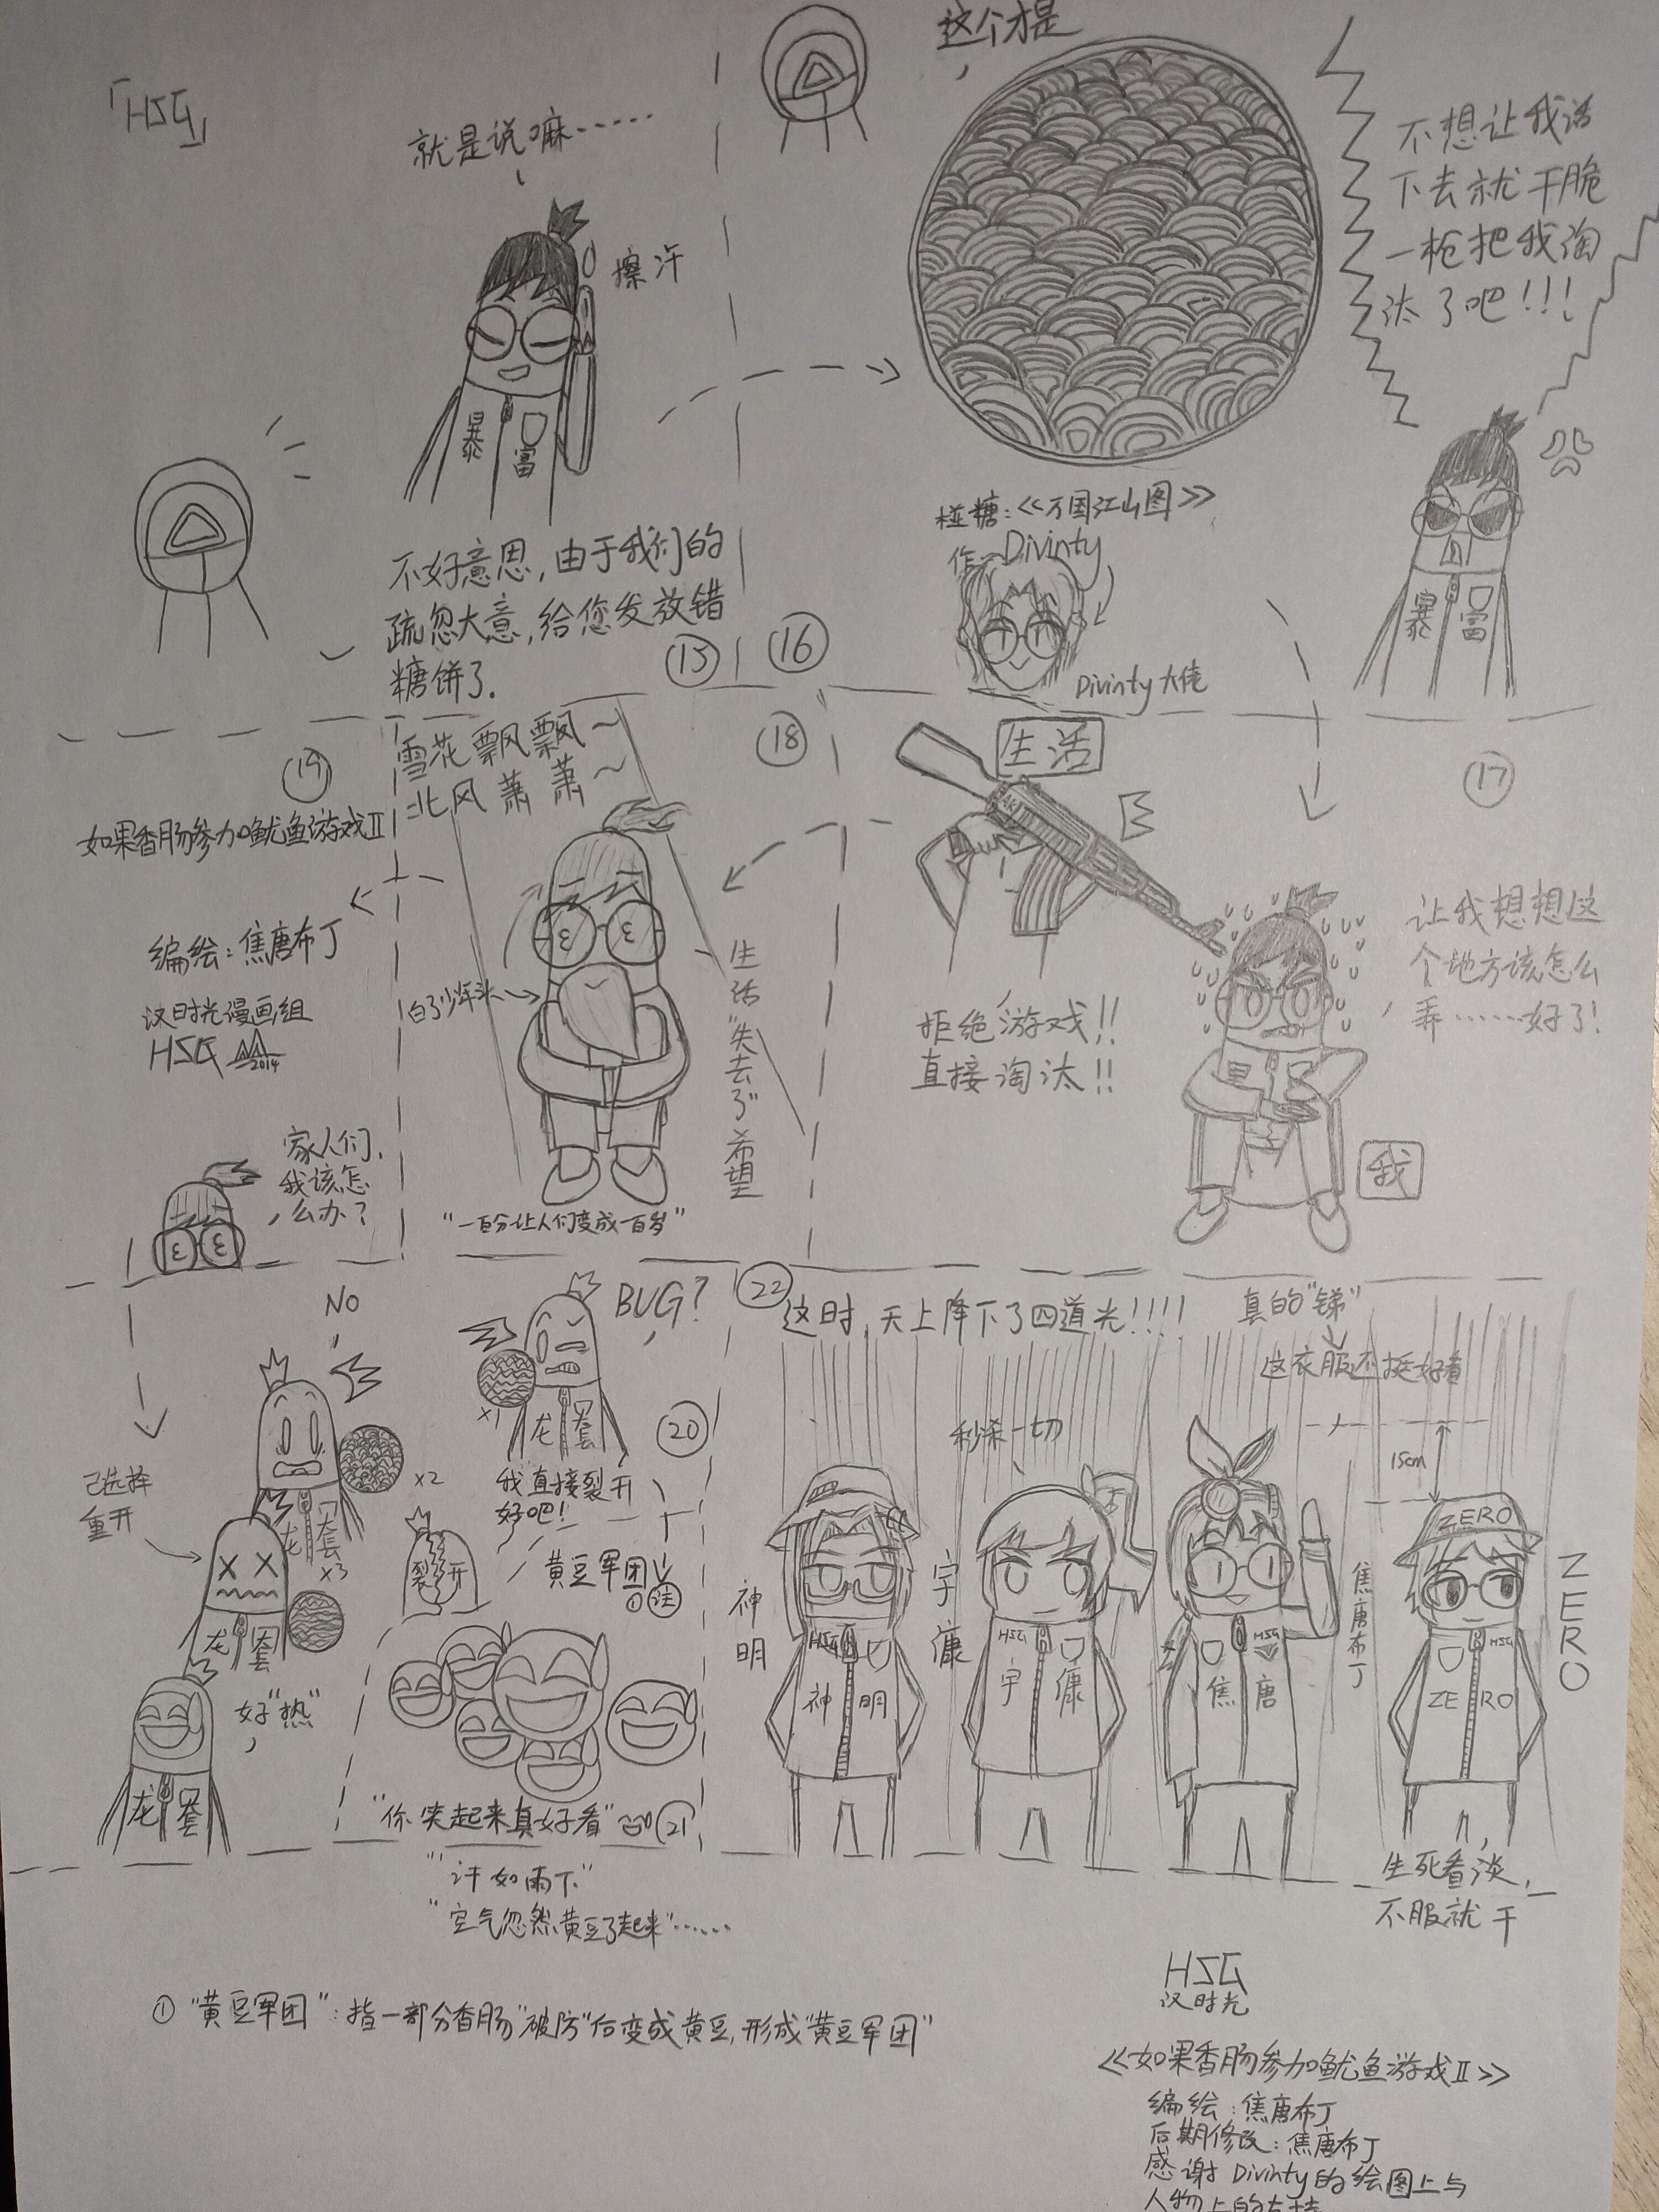 「HSG」
就是说嘛……
擦汗
暴富
不好意思,由于我们的
疏忽大意,给您发放错
糖饼了.
⑮
⑯
这个才是
椪糖:《万国江山图》
作—Divinty
Divinty大佬
不想让我活
下去就干脆
一枪把我淘
汰了吧!!!
暴富
⑰
生活
拒绝游戏!!
直接淘汰!!
让我想想这
个地方该怎么
弄……好了!
我
⑱
雪花飘飘~
北风萧萧~
白了少年头
生活“失去了”希望
“一百分让人们变成一百岁”
⑲
如果香肠参加鱿鱼游戏Ⅱ
编绘:焦唐布丁
汉时光漫画组
HSG
2014
家人们,
我该怎
么办?
NO
BUG?
x1
龙套
⑳
x2
龙套
已选择
重开
x3
龙套
好“热”
龙套
我直接裂开
好吧!
裂开
黄豆军团
① 注
“你笑起来真好看”
21
“汗如雨下”
“空气忽然黄豆了起来”……
22
这时,天上降下了四道光!!!!
真的“锑”
这衣服还挺好看
秒杀一切
15cm
神明
HSG
神明
宇
HSG
宇
焦唐布丁
HSG
焦唐
ZERO
ZERO
HSG
ZERO
生死看淡,
不服就干
① “黄豆军团”:指一部分香肠“破防”后变成黄豆,形成“黄豆军团”
HSG
汉时光
《如果香肠参加鱿鱼游戏Ⅱ》
编绘:焦唐布丁
后期修改:焦唐布丁
感谢Divinty的绘图上与
人物上的支持